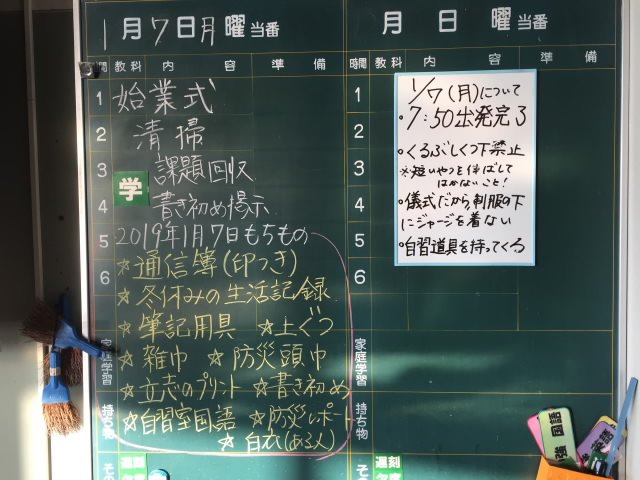 1月7日月曜当番
時間 教科 内容 準備
1 始業式
2 清掃
3 課題回収
学
4 書き初め掲示
5 2019年1月7日もちもの
6 ☆通信簿(印つき)
☆冬休みの生活記録
☆筆記用具 ☆上ぐつ
家庭学習 ☆雑巾 ☆防災頭巾
☆立志のプリント ☆書き初め
持ち物 ☆自習室国語 ☆防災レポート
☆白衣(ある人)
遅刻
月 日 曜当番
時間 教科 内容 準備
1
2
3
4
5
6
家庭学習
持ち物
遅刻
1/7(月)について
・7:50出発完了
・くるぶしくつ下禁止
※短いやつを伸ばして
はかないこと!
・儀式だから、制服の下
にジャージを着ない
・自習道具を持ってくる
国語